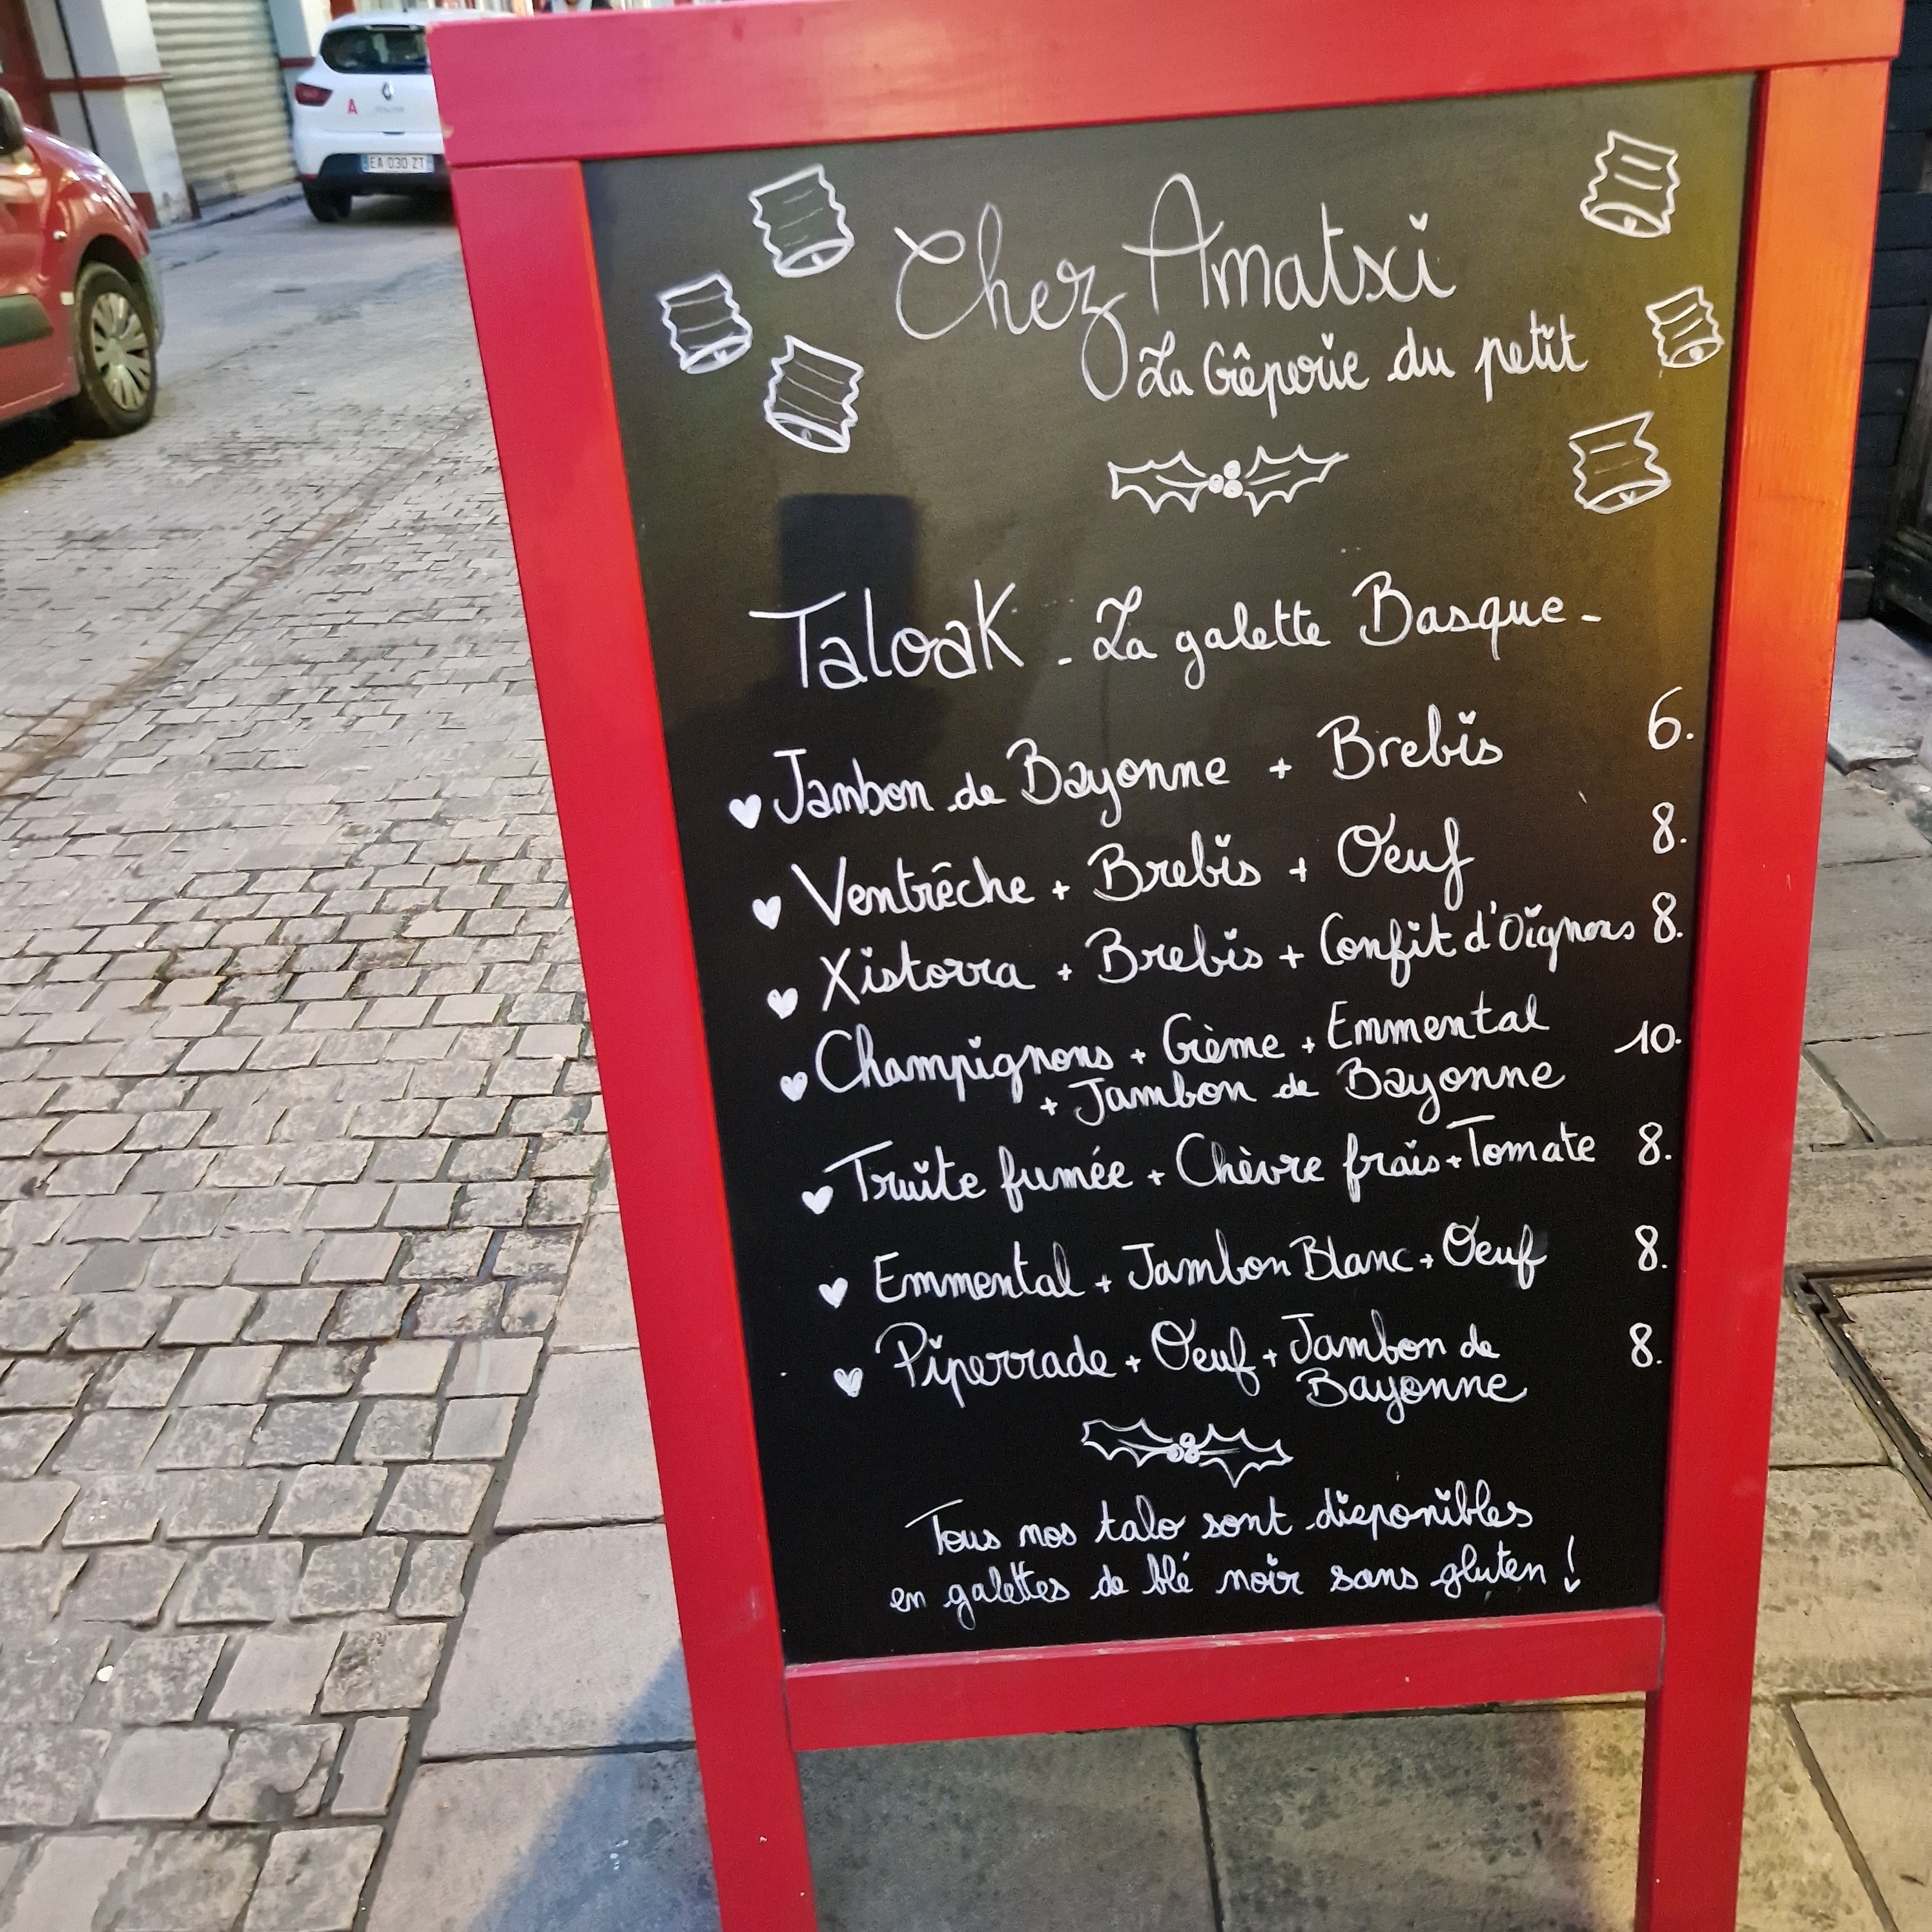 EA 030 ZT
A
Chez Amatxi
La Crêperie du petit
Taloak - La galette Basque -
Jambon de Bayonne + Brebis 6.
Ventrêche + Brebis + Oeuf 8.
Xistorra + Brebis + Confit d'Oignons 8.
Champignons + Crème + Emmental 10.
+ Jambon de Bayonne
Truite fumée + Chèvre frais + Tomate 8.
Emmental + Jambon Blanc + Oeuf 8.
Piperrade + Oeuf + Jambon de 8.
Bayonne
Tous nos talo sont disponibles
en galettes de blé noir sans gluten !